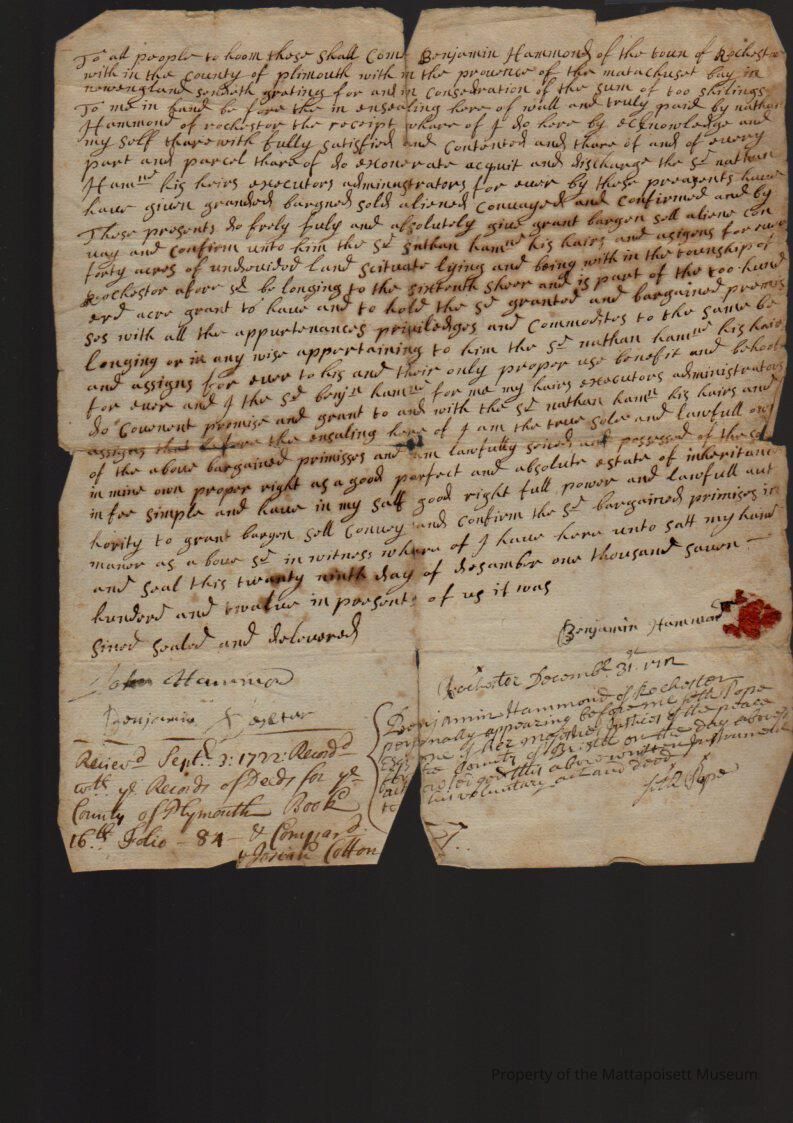 To all people to hoom these shall Come Benjamin Hammond of the toun of Rochester
with in the County of plimouth with in the provence of the matachuset bay in
newengland sendeth grating for and in Consederation of the sum of too shilings
To me in hand be fore the in ensealing here of wall and truly paid by nathan
Hammond of rochestor the receipt whare of I do here by ecknowledge and
my self tharewith fully satisfied and Contented and thare of and of every
part and parcel thare of do exonerate acquit and discharge the sd nathan
Hamnd his heirs executors administrators for ever by these presents have
have given granded bargned sold aliened Convayed and Confirmed and by
These presents do frely fuly and absolutely give grant bargen sell aliene con
vay and Confirm unto him the sd nathan hamnd his hairs and asigens for ever
forty acres of undevided land scituate lying and being with in the township of
Rochestor afore sd be longing to the sixtenth sheer and is part of the too hund
erd acre grant to have and to hold the sd granted and bargained premis
ses with all the appurtenances priviledges and Commodites to the same be
longing or in any wise appertaining to him the sd nathan hamnd his hairs
and assigns for ever to his and their only proper use benefit and behoof
for ever and I the sd benjn hamnd for me my hairs executors administrators
do Covenent promise and grant to and with the sd nathan hamn his hairs and
assigns that before the ensaling here of I am the true sole and lawfull ow
of the above bargained primisses and am lawfully seised and possessed of the sa
in mine own proper right as a good parfect and absolute estate of inheritance
in fee simple and have in my salf good right full power and lawfull aut
hority to grant bargen sell Convey and Confirm the sd bargained primises in
maner as a bove sd in witness whare of I have here unto satt my hand
and seal this twanty ninth day of desamber one thousand saven
hundered and twalve in presents of us it was
sined sealed and delevered
Benjamin Hammond
John Hammond
Benjamin Dexter
Rochester Decembr 31st 1712
Benjamin Hammond of Rochester
personally appearing before me Seth Pope
one of her majesties Justices of the peace
the County of Bristoll on the day above
this above written Instrument
his voluntary act and deed
Seth Pope
Reciev'd Septr 3: 1722: Record'd
wth ye Records of Deeds for ye
County of Plymouth Book
16th Folio - 84 - & Compard
Josiah Cotton
Property of the Mattapoisett Museum